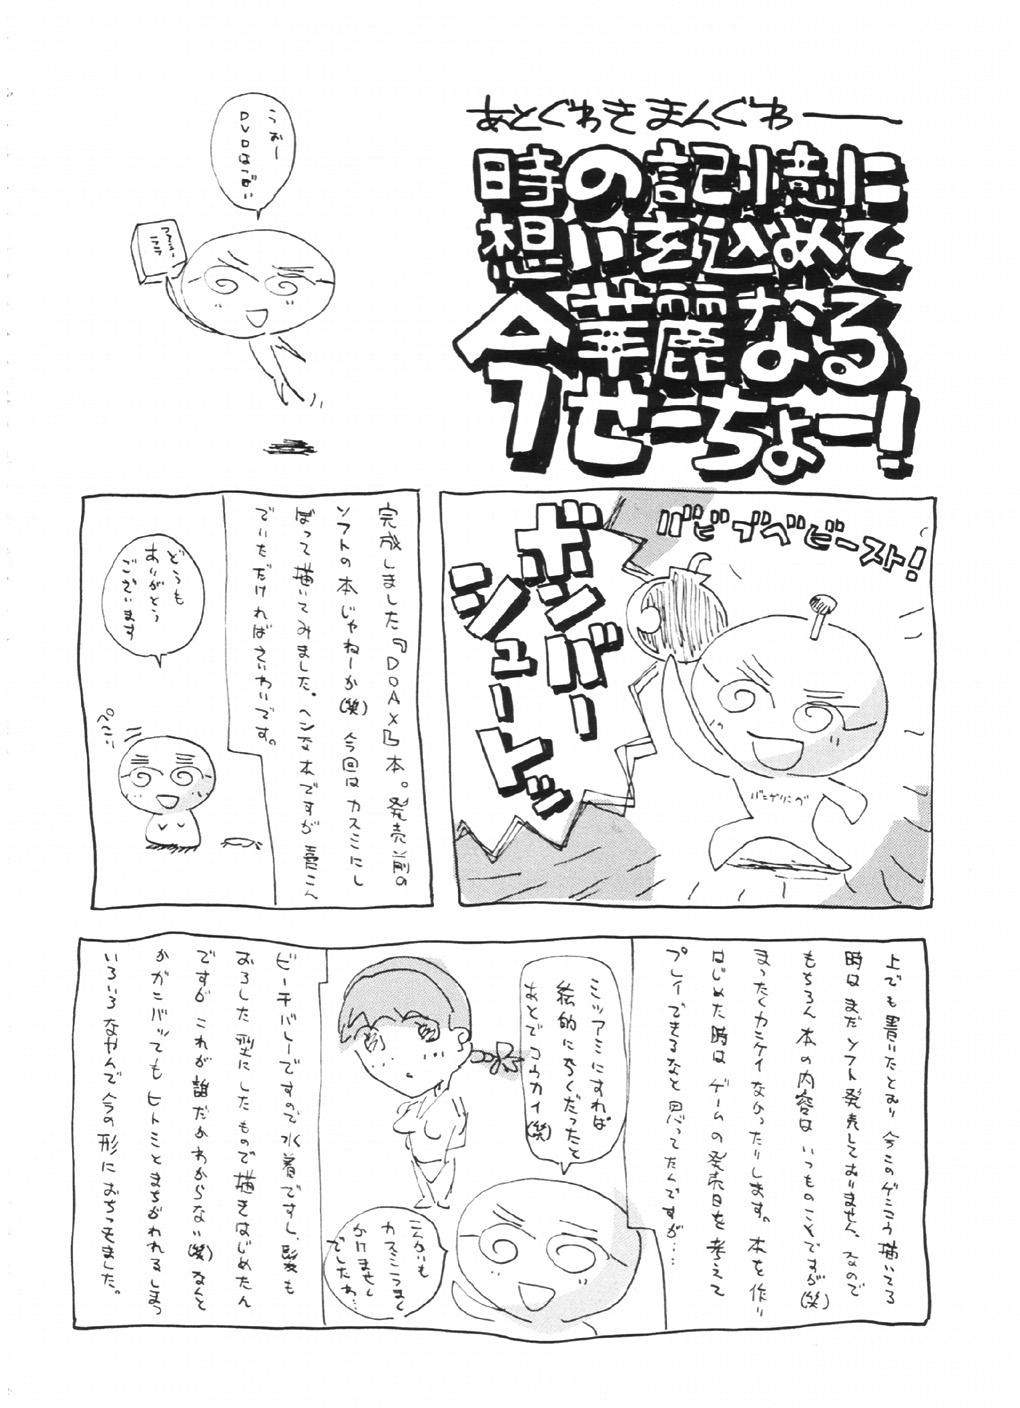 あとぐわき まんぐわ——
時の記憶に
想いを込めて
今華麗なる
せーちょー!
うおー
DVDはつばい
バビブベビースト!
ボンバー
シュートッ
バンゲリング
完成しました『DOAX』本。発売前の
ソフトの本じゃねーか(笑) 今回はカスミにし
ぼって描いてみました。ヘンな本ですが
でいただければさいわいです。
どうも
ありがとう
ございます
ぺこ
上でも書いたとおり 今このゲンコウ描いてる
時はまだソフト発売しておりません。なので
もちろん本の内容は いつものことですが(笑)
まったくカンケイなかったりします。本を作り
はじめた時は ゲームの発売日を考えて
プレイできるなと思ってたんですが…
ミツアミにすれば
絵的にらくだったと
あとでコウカイ(笑)
こんかいも
カスミこうまく
かけません
でしたね…
ビーチバレーですので水着ですし、髪も
おろした型にしたもので描きはじめたん
ですが これが誰だかわからない(笑) なんと
かがんバッてもヒトミとまちがわれるしまつ
いろいろなやんで今の形におちつきました。